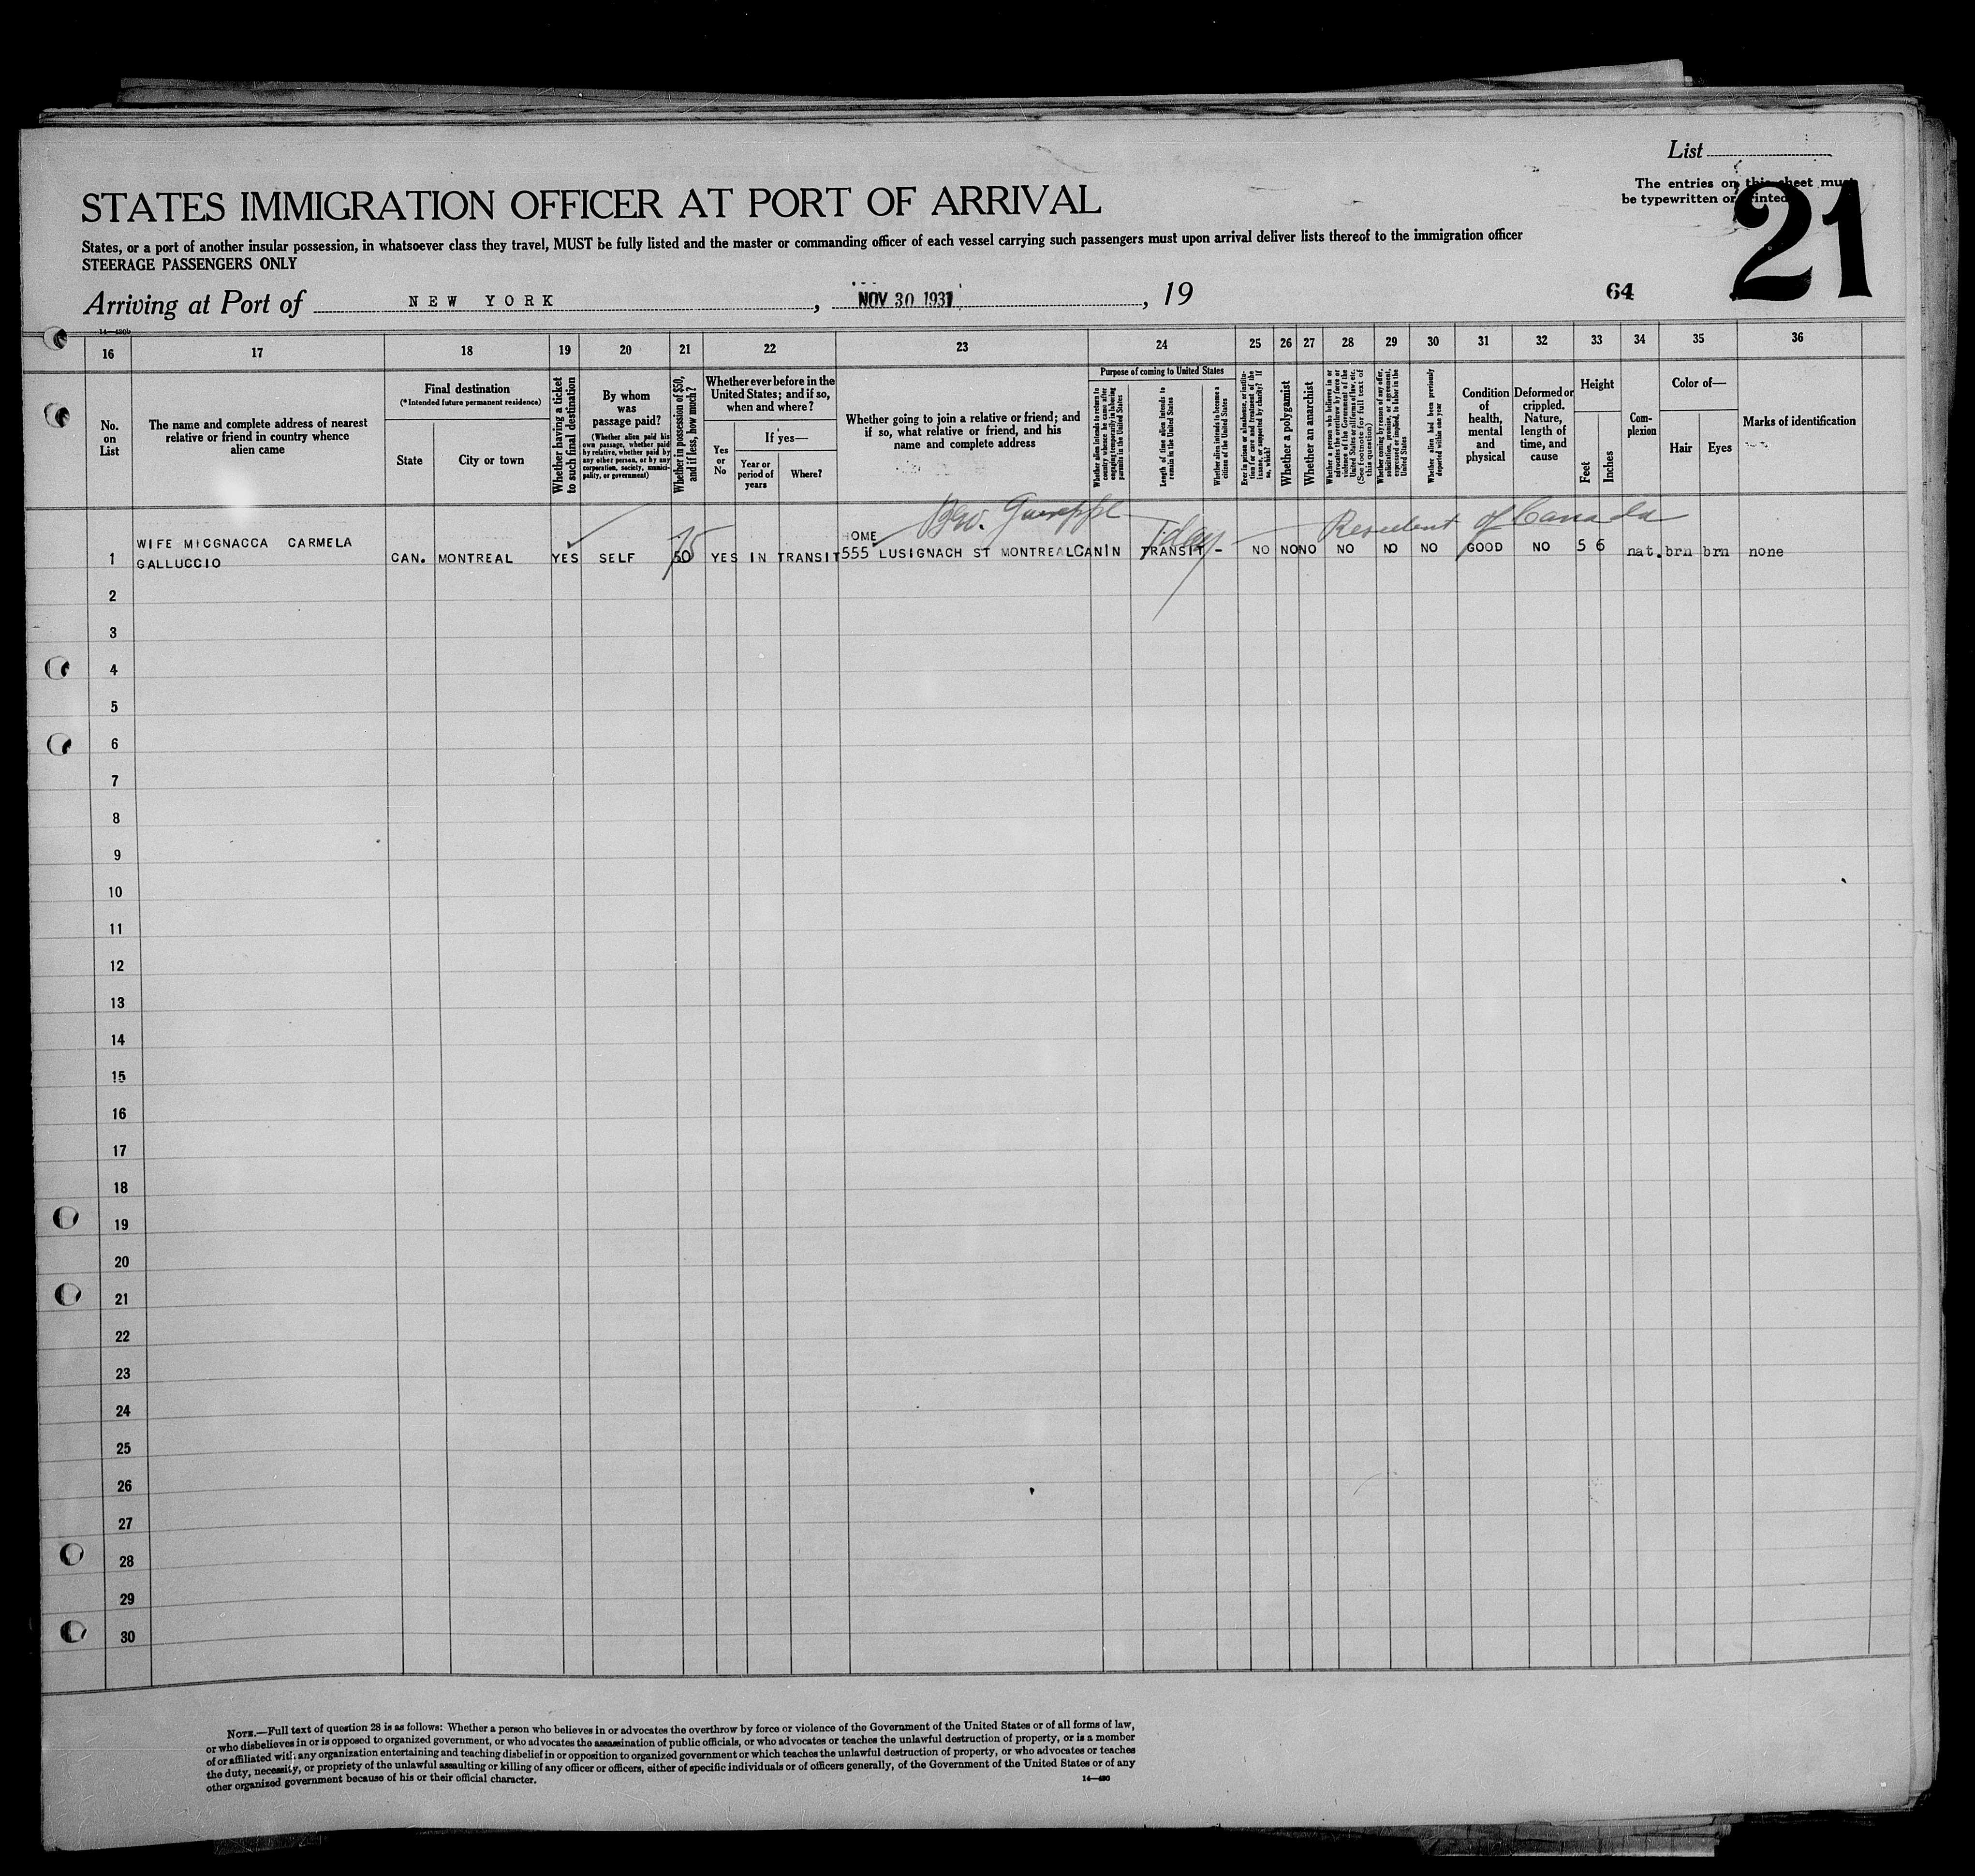 List
The entries on this sheet must
be typewritten or printed
21
STATES IMMIGRATION OFFICER AT PORT OF ARRIVAL
States, or a port of another insular possession, in whatsoever class they travel, MUST be fully listed and the master or commanding officer of each vessel carrying such passengers must upon arrival deliver lists thereof to the immigration officer
STEERAGE PASSENGERS ONLY
Arriving at Port of NEW YORK, NOV 30 1931, 19
64
16 17 18 19 20 21 22 23 24 25 26 27 28 29 30 31 32 33 34 35 36
No. on List
The name and complete address of nearest relative or friend in country whence alien came
Final destination
(*Intended future permanent residence)
State
City or town
Whether having a ticket to such final destination
By whom was passage paid?
(Whether alien paid his own passage, whether paid by relative, whether paid by any other person, or by any corporation, society, municipality, or government)
Whether in possession of $50, and if less, how much?
Whether ever before in the United States; and if so, when and where?
Yes or No
If yes—
Year or period of years
Where?
Whether going to join a relative or friend; and if so, what relative or friend, and his name and complete address
Purpose of coming to United States
Whether alien intends to return to country whence he came after engaging temporarily in laboring pursuits in the United States
Length of time alien intends to remain in the United States
Whether alien intends to become a citizen of the United States
Ever in prison or almshouse, or institution for care and treatment of the insane, or supported by charity? If so, which?
Whether a polygamist
Whether an anarchist
Whether a person who believes in or advocates the overthrow by force or violence of the Government of the United States or all forms of law, etc. (See footnote for full text of this question)
Whether coming by reason of any offer, solicitation, promise, or agreement, expressed or implied, to labor in the United States
Whether alien had been previously deported within one year
Condition of health, mental and physical
Deformed or crippled. Nature, length of time, and cause
Height
Feet
Inches
Complexion
Color of—
Hair
Eyes
Marks of identification
Bro. Guiseppe
Resident of Canada
1 WIFE MICGNACCA CARMELA
GALLUCCIO
CAN. MONTREAL YES SELF 50 75 YES IN TRANSIT
HOME
555 LUSIGNACH ST MONTREAL CAN IN TRANSIT - NO NO NO NO NO NO GOOD NO 5 6 nat. brn brn none
2
3
4
5
6
7
8
9
10
11
12
13
14
15
16
17
18
19
20
21
22
23
24
25
26
27
28
29
30
NOTE.—Full text of question 28 is as follows: Whether a person who believes in or advocates the overthrow by force or violence of the Government of the United States or of all forms of law,
or who disbelieves in or is opposed to organized government, or who advocates the assassination of public officials, or who advocates or teaches the unlawful destruction of property, or is a member
of or affiliated with any organization entertaining and teaching disbelief in or opposition to organized government or which teaches the unlawful destruction of property, or who advocates or teaches
the duty, necessity, or propriety of the unlawful assaulting or killing of any officer or officers, either of specific individuals or of officers generally, of the Government of the United States or of any
other organized government because of his or their official character.
14—480